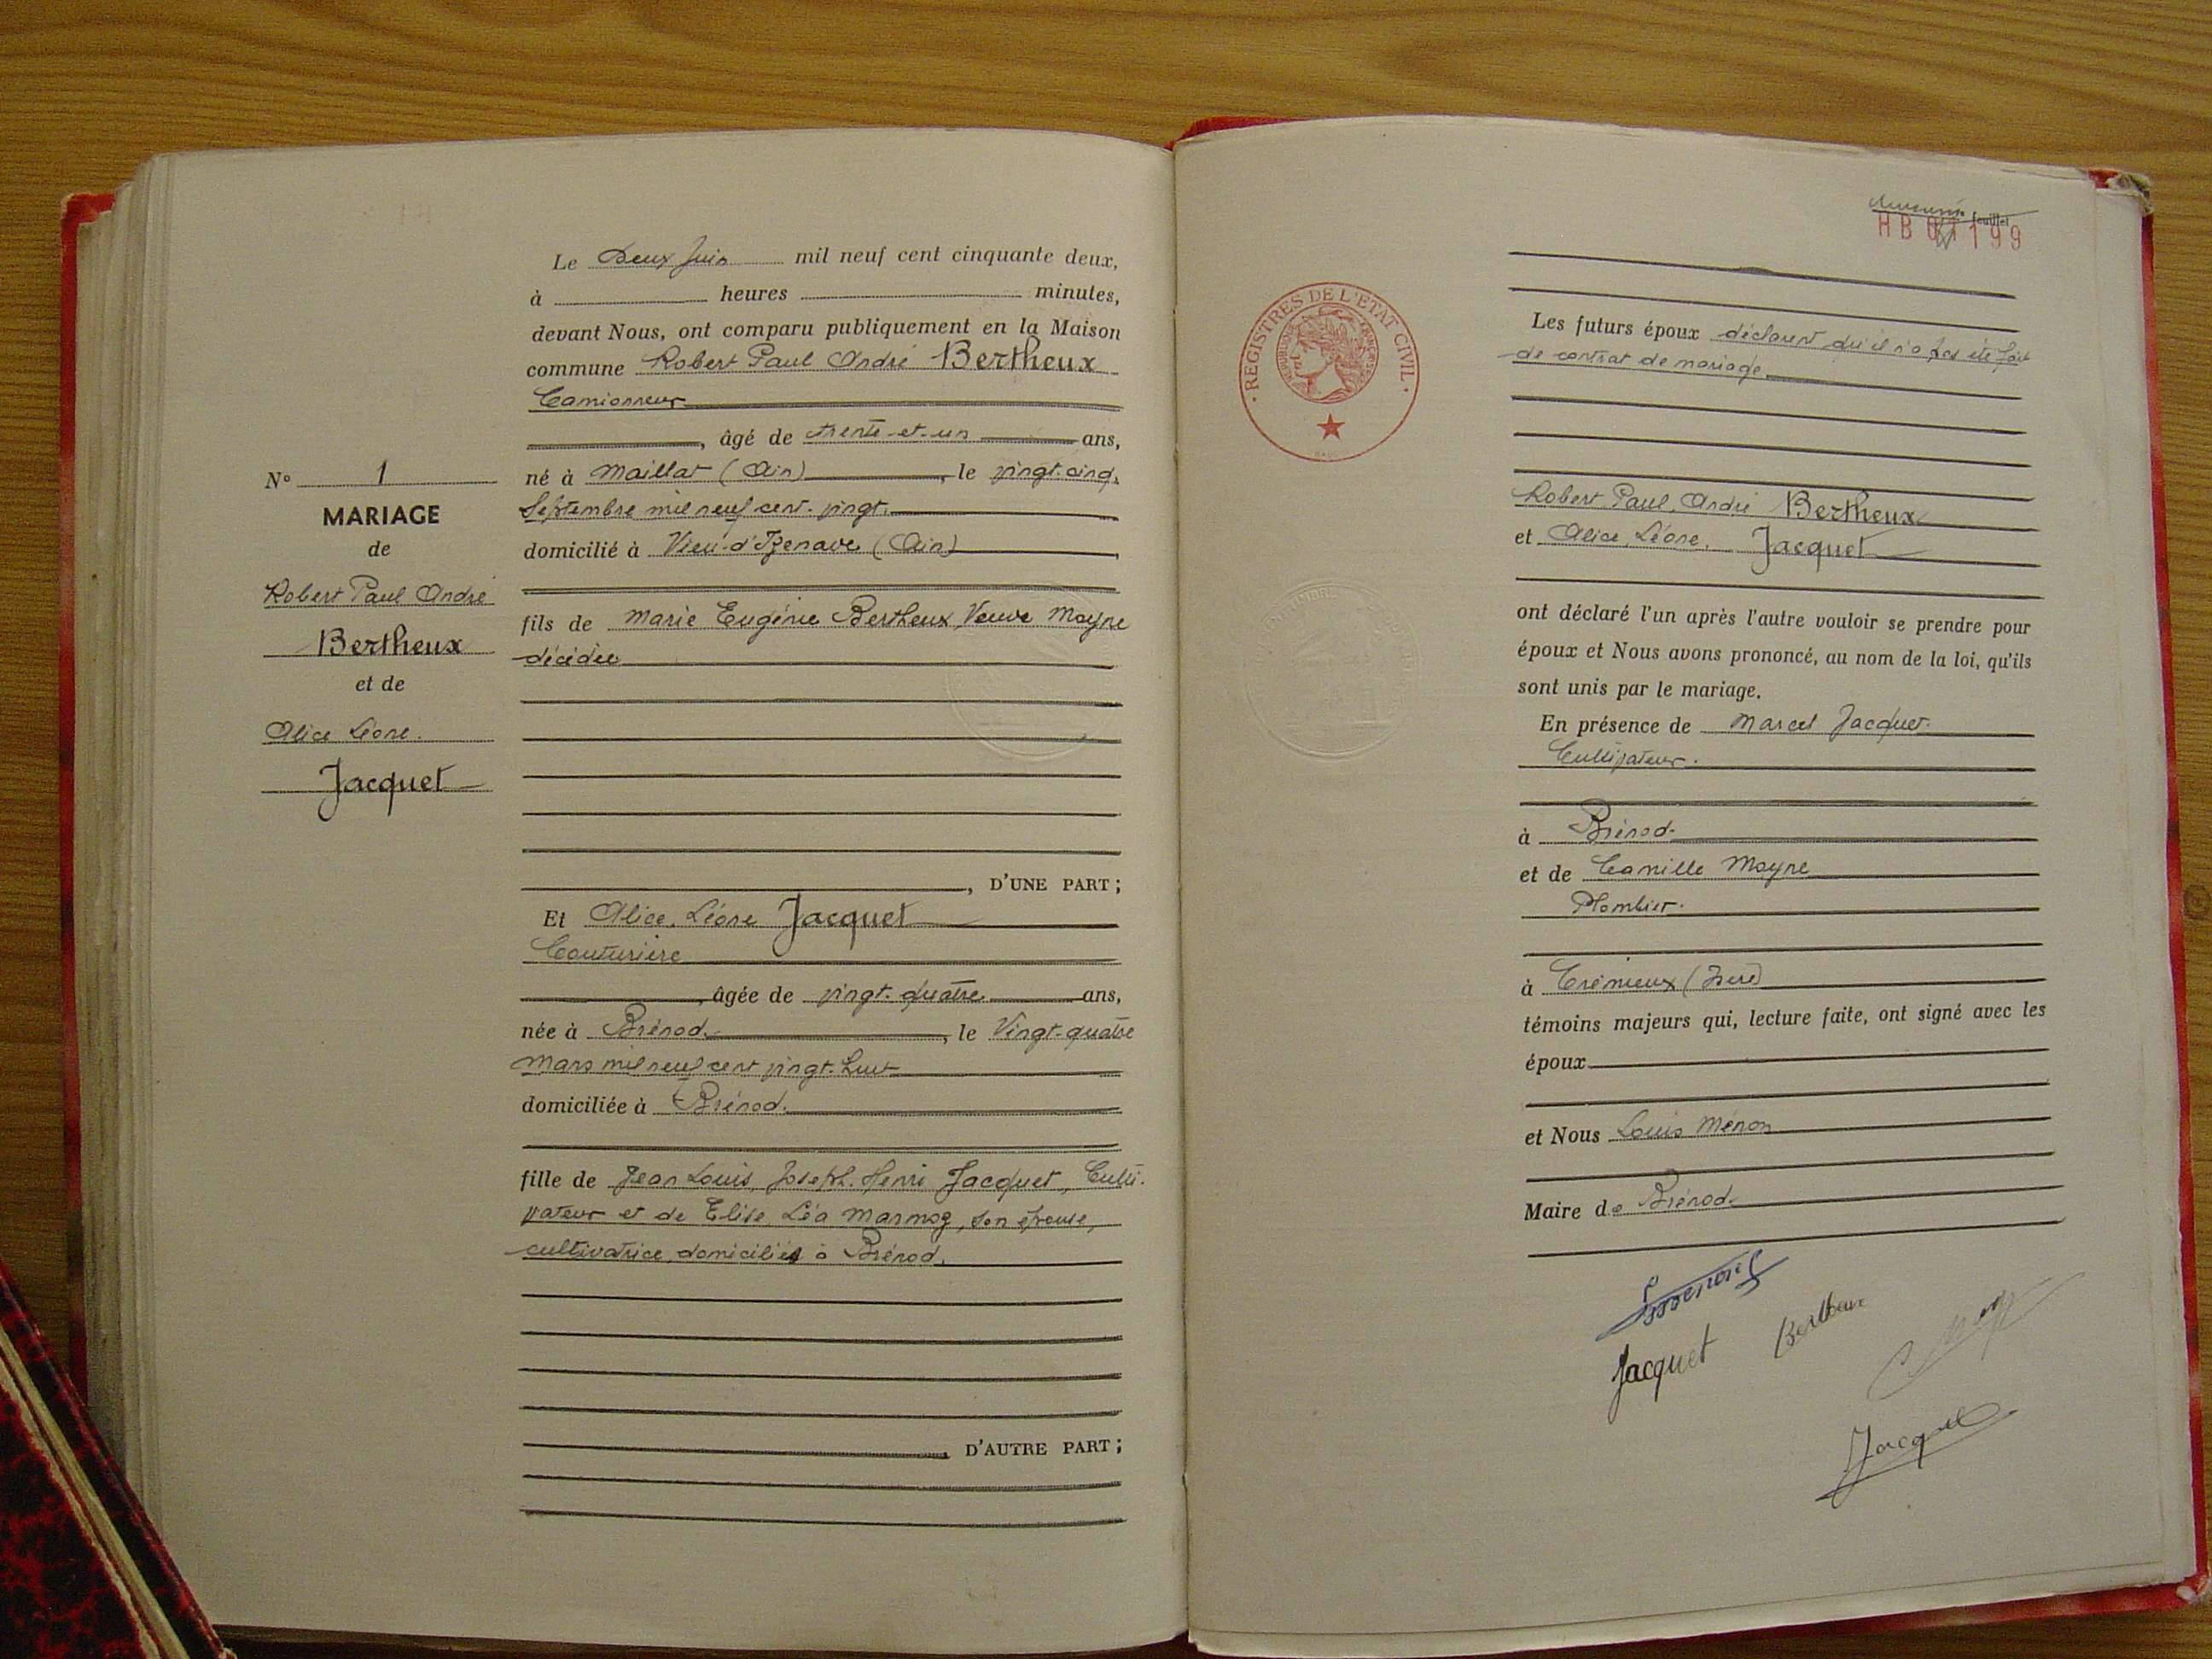 N° 1
MARIAGE
de
Robert Paul André
Bertheux
et de
Alice Léone.
Jacquet
Le Deux Juin mil neuf cent cinquante deux,
à heures minutes,
devant Nous, ont comparu publiquement en la Maison
commune Robert Paul André Bertheux
Camionneur
, âgé de trente-et-un ans,
né à Maillat (Ain), le vingt-cinq
Septembre mil neuf cent vingt.
domicilié à Vieu-d'Izenave (Ain),
fils de Marie Eugénie Bertheux, Veuve Moyne
décédée
, D'UNE PART ;
Et Alice, Léone Jacquet
Couturière
, âgée de vingt-quatre ans,
née à Brénod, le Vingt-quatre
Mars mil neuf cent vingt-huit
domiciliée à Brénod.
fille de Jean Louis, Joseph, Henri Jacquet, Culti-
vateur et de Elise, Léa, son épouse,
cultivatrice, domiciliés à Brénod.
, D'AUTRE PART ;
feuillet
HB 199
REGISTRES DE L'ETAT CIVIL
REPUBLIQUE FRANÇAISE
Les futurs époux déclarent qu'il n'a pas été fait
de contrat de mariage.
Robert, Paul, André Bertheux
et Alice, Léone, Jacquet
ont déclaré l'un après l'autre vouloir se prendre pour
époux et Nous avons prononcé, au nom de la loi, qu'ils
sont unis par le mariage.
En présence de Marcel Jacquet.
Cultivateur.
à Brénod
et de Camille Moyne
Plombier.
à Crémieux (Isère)
témoins majeurs qui, lecture faite, ont signé avec les
époux
et Nous Louis Ménon
Maire de Brénod
Jacquet Bertheux
Jacquet